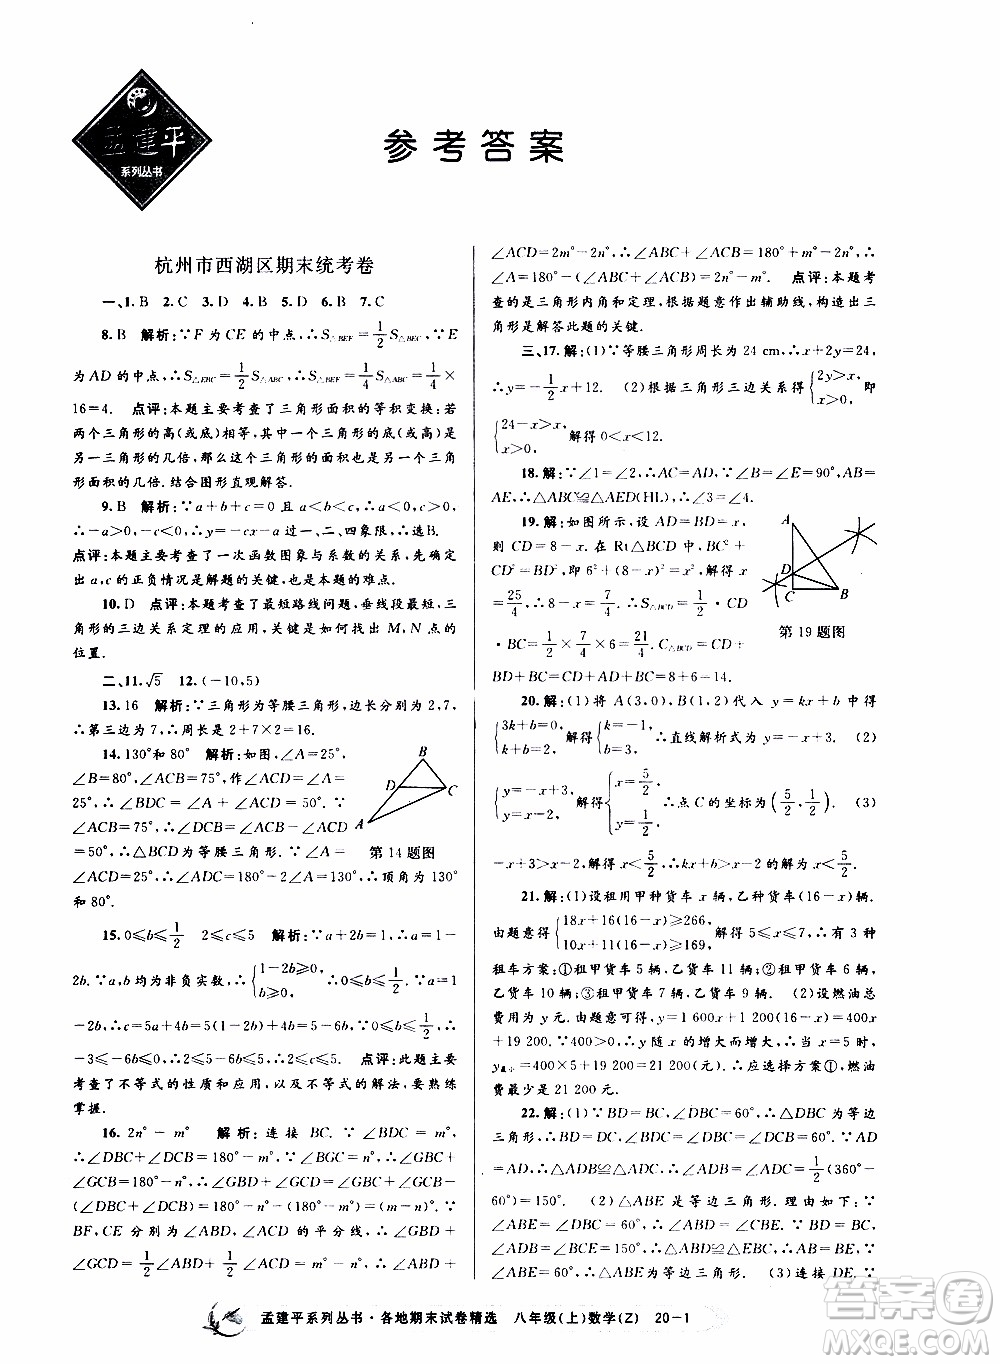 孟建平
系列丛书
参考答案
杭州市西湖区期末统考卷
一、1.B 2.C 3.D 4.D 5.D 6.B 7.C
8.B 解析:∵F为CE的中点,∴S△BEF=1/2S△BEC,∵E
为AD的中点,∴S△EBC=1/2S△ABC,∴S△BEF=1/4S△ABC=1/4×
16=4. 点评:本题主要考查了三角形面积的等积变换:若
两个三角形的高(或底)相等,其中一个三角形的底(或高)是
另一三角形的几倍,那么这个三角形的面积也是另一个三角
形面积的几倍.结合图形直观解答.
9.B 解析:∵a+b+c=0且a<b<c,∴a<0,c>0,
∴-a>0,∴y=-cx-a的图象经过一、二、四象限,∴选B.
点评:本题主要考查了一次函数图象与系数的关系,先确定
出a,c的正负情况是解题的关键,也是本题的难点.
10.D 点评:本题考查了最短路线问题,垂线段最短,三
角形的三边关系定理的应用,关键是如何找出M,N点的
位置.
二、11.√5 12.(-10,5)
13.16 解析:∵三角形为等腰三角形,边长分别为2,7,
∴第三边为7,∴周长是2+7×2=16.
14.130°和80° 解析:如图,∠A=
25°,∠B=80°,∠ACB=75°,作∠ACD=∠A=
25°,∴∠BDC=∠A+∠ACD=50°.∵
∠ACB=75°,∴∠DCB=∠ACB-∠ACD
=50°,∴△BCD为等腰三角形.∴顶角可能
和80°.
B
D
C
A
第14题图
15.0≤b≤1/2 2≤c≤5 解析:∵a+2b=1,∴a=1-
2b.∵a,b均为非负实数,∴{1-2b≥0,b≥0, 解得0≤b≤1/2;∵a=1
-2b,∴c=5a+4b=5-10b+4b=5-6b,∵0≤b≤1/2,∴
-3≤-6b≤0,∴2≤5-6b≤5,即2≤c≤5. 点评:此题主要
考查了不等式的性质和应用,以及不等式的解法,要熟练
掌握.
16.2n°-m° 解析:连接BC.∵∠BDC=m°,
∴∠DBC+∠DCB=180°-m°.∵∠BGC=n°,∴∠GBC+
∠GCB=180°-n°.∴∠GBD+∠GCD=∠GBC+∠GCB-
(∠DBC+∠DCB)=180°-n°-(180°-m°)=m°-n°.∵
BF,CE分别为∠ABD,∠ACD的平分线,∴∠GBD+
∠GCD=1/2∠ABD+1/2∠ACD=m°-n°,∴∠ABD+
∠ACD=2m°-2n°,∴∠A=180°-(∠ABC+∠ACB)=180°-(∠ABD+
∠ACD+180°-m°)=2n°-m°. 点评:本题考
查的是三角形内角和定理,根据题意作出辅助线,构造出三
角形是解答此题的关键.
三、17.解:(1)∵等腰三角形周长为24 cm,∴x+2y=24,
∴y=-1/2x+12. (2)根据三角形三边关系得{2y>x,x>0,即
{24-x>x,x>0, 解得0<x<12.
18.解:∵∠1=∠2,∴AC=AD,∵∠B=∠E=90°,AB=
AE,∴△ABC≌△AED(HL),∴∠3=∠4.
19.解:如图所示,设AD=BD=x,
则CD=8-x.在Rt△BCD中,BC²+
CD²=BD²,即6²+(8-x)²=x²,解得x=
25/4,∴8-x=7/4. ∴S△BCD=1/2·CD
·BC=1/2×7/4×6=21/4.C△BCD=CD+
BD+BC=CD+AD+BC=8+6=14.
A
D
C
B
第19题图
20.解:(1)将A(3,0),B(1,2)代入y=kx+b中得
{3k+b=0,k+b=2, 解得{k=-1,b=3, ∴直线解析式为y=-x+3. (2)
{y=-x+3,y=x-2, 解得{x=5/2,y=1/2, ∴点C的坐标为(5/2,1/2). (3)
-x+3>x-2,解得x<5/2,∴kx+b>x-2的解为x<5/2.
21.解:(1)设租用甲种货车x辆,乙种货车(16-x)辆,
由题意得{18x+16(16-x)≥266,10x+11(16-x)≥169, 解得5≤x≤7,∴有三种
租车方案:①租甲货车5辆,乙货车11辆;②租甲货车6辆,
乙货车10辆;③租甲货车7辆,乙货车9辆. (2)设燃油总
费用为y元.由题意得,y=1 600x+1 200(16-x)=400x+
19 200,∵400>0,∴y随x的增大而增大,∴当x=5时,
y最小=400×5+19 200=21 200(元).∴应选择方案①,燃油
费最少是21 200元.
22.解:(1)∵BD=BC,∠DBC=60°,∴△DBC是等
边三角形,∴DB=DC,∠BDC=∠DBC=∠DCB=60°,∵AD
=AD,∴△ADB≌△ADC,∴∠ADB=∠ADC=1/2(360°-
60°)=150°. (2)△ABE是等边三角形.理由如下:∵
∠ABE=∠DBC=60°,∴∠ABD=∠CBE.∵BD=BC,
∠ADB=∠BCE=150°,∴△ABD≌△EBC,∴AB=BE.∵
∠ABE=60°,∴△ABE是等边三角形. (3)连接DE.∵
孟建平系列丛书·各地期末试卷精选 八年级(上)数学(Z) 20-1
答案圈